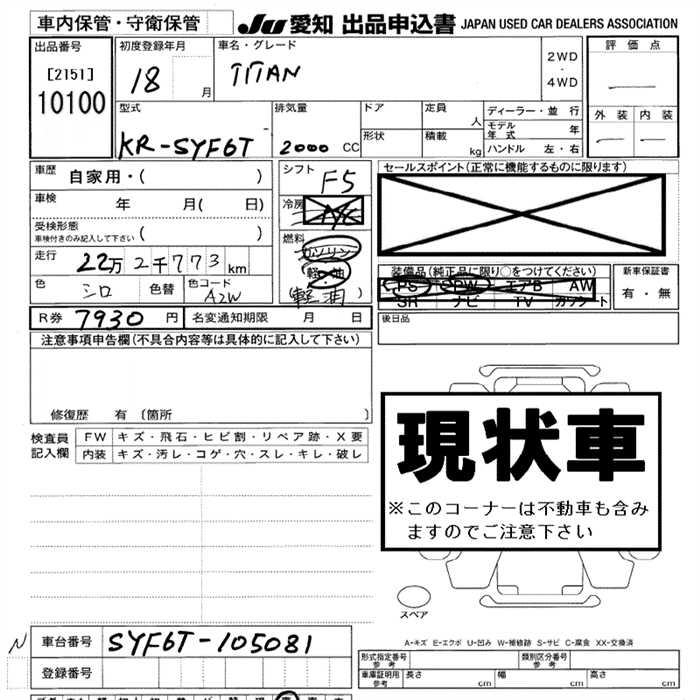 車内保管・守衛保管
JU 愛知 出品申込書 JAPAN USED CAR DEALERS ASSOCIATION
出品番号
[2151]
10100
初度登録年月
18 月
車名・グレード
TITAN
2WD
・
4WD
評価点
外装 内装
型式
KR-SYF6T
排気量
2000 CC
ドア
形状
定員
人
積載
kg
ディーラー・並行
モデル年式 年
ハンドル 左・右
車歴 自家用・( )
車検 年 月( 日)
受検形態
車検付きのみ記入して下さい ( )
走行 22万2千773km
色 シロ 色替 色コード A2W
シフト F5
冷房 A/C
燃料
ガソリン
軽・油
(軽油)
セールスポイント(正常に機能するものに限ります)
装備品(純正品に限り○をつけてください)
PS PW エアB AW
SR ナビ TV カワシート
新車保証書
有・無
R券 7930 円 名変通知期限 月 日
後日品
注意事項申告欄(不具合内容等は具体的に記入して下さい)
修復歴 有 〔箇所 〕
検査員記入欄
FW キズ・飛石・ヒビ割・リペア跡・X要
内装 キズ・汚レ・コゲ・穴・スレ・キレ・破レ
現状車
※このコーナーは不動車も含み
ますのでご注意下さい
スペア
A-キズ E-エクボ U-凹み W-補修跡 S-サビ C-腐食 XX-交換済
N 車台番号 SYF6T-105081
登録番号
形式指定番号 参考
類別区分番号 参考
車庫証明用 参考 長さ cm 幅 cm 高さ cm